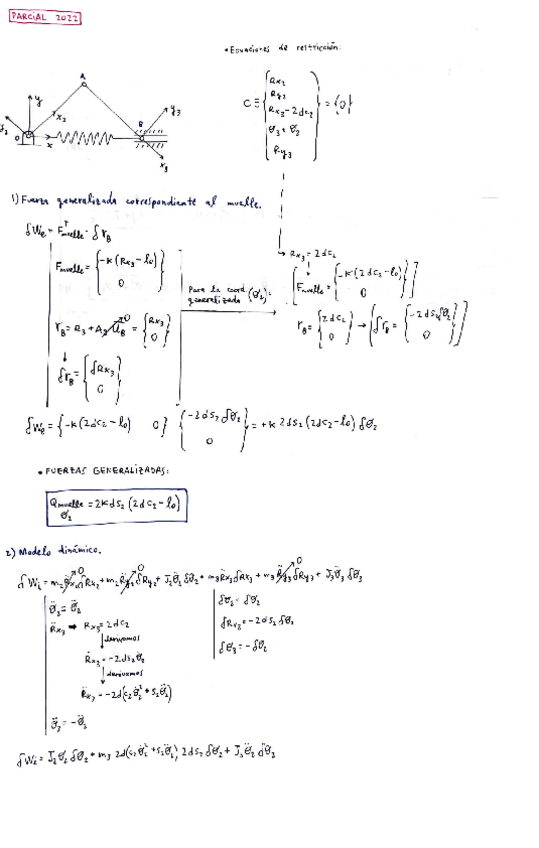 PARCIAL 2022
• Ecuaciones de restricción:
C ≡ { Rx2
Ry2
Rx3 - 2dc2
θ3 = θ2
Ry3 } = {0}
A
y
x2
y3
y2
B
O
x
x3
1) Fuerza generalizada correspondiente al muelle.
δWe = F^T muelle · δr_B
F muelle = { -K(Rx3 - l0)
0 }
r_B = R3 + A3 ū_B^0 = { Rx3
0 }
δr_B = { δRx3
0 }
Para la coord. generalizada (θ2):
→ Rx3 = 2dc2
[ F muelle = { -K(2dc2 - l0)
0 } ]
r_B = { 2dc2
0 } → [ δr_B = { -2ds2 δθ2
0 } ]
δWe = { -K(2dc2 - l0) 0 } { -2ds2 δθ2
0 } = +K 2ds2 (2dc2 - l0) δθ2
• FUERZAS GENERALIZADAS:
Q muelle θ2 = 2Kds2 (2dc2 - l0)
2) Modelo dinámico.
δWi = m2 R̈x2 δRx2 + m2 R̈y2 δRy2 + J2 θ̈2 δθ2 + m3 R̈x3 δRx3 + m3 R̈y3 δRy3 + J3 θ̈3 δθ3
0 0 0
θ̈2 = θ̈2
R̈x3 → Rx3 = 2dc2
derivamos
Ṙx3 = -2ds2 θ̇2
derivamos
R̈x3 = -2d(c2 θ̇2² + s2 θ̈2)
θ̈3 = -θ̈2
δθ2 = δθ2
δRx3 = -2ds2 δθ2
δθ3 = -δθ2
δWi = J2 θ̈2 δθ2 + m3 2d(c2 θ̇2² + s2 θ̈2) 2ds2 δθ2 + J3 θ̈2 δθ2